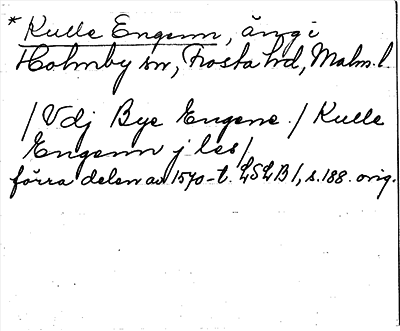 * Kulle Engenn, äng i
Holmby sn, Frosta hd, Malm. l.
/Vdj Bye Engene./ Kulle
Engenn j les/
förra delen av 1570-t. LSLB 1, s. 188. orig.